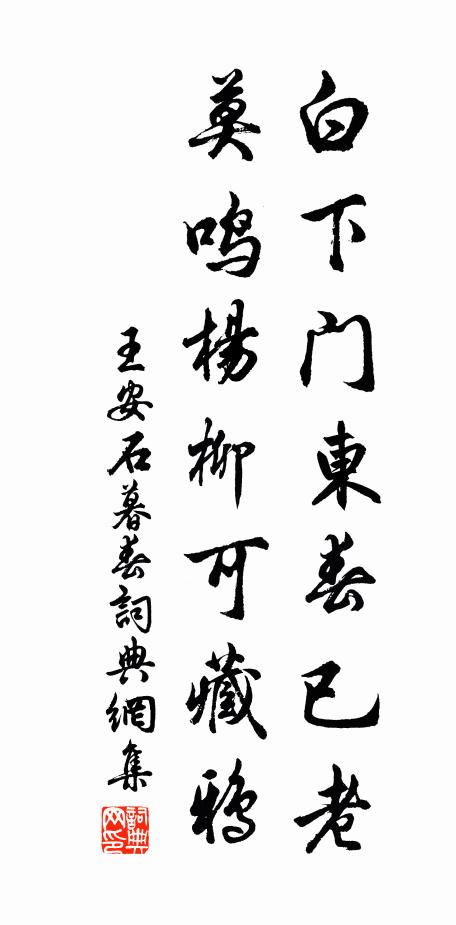 白下門東春已老
莫鳴楊柳可藏鴉
王安石暮春詞典網集
詞典網印